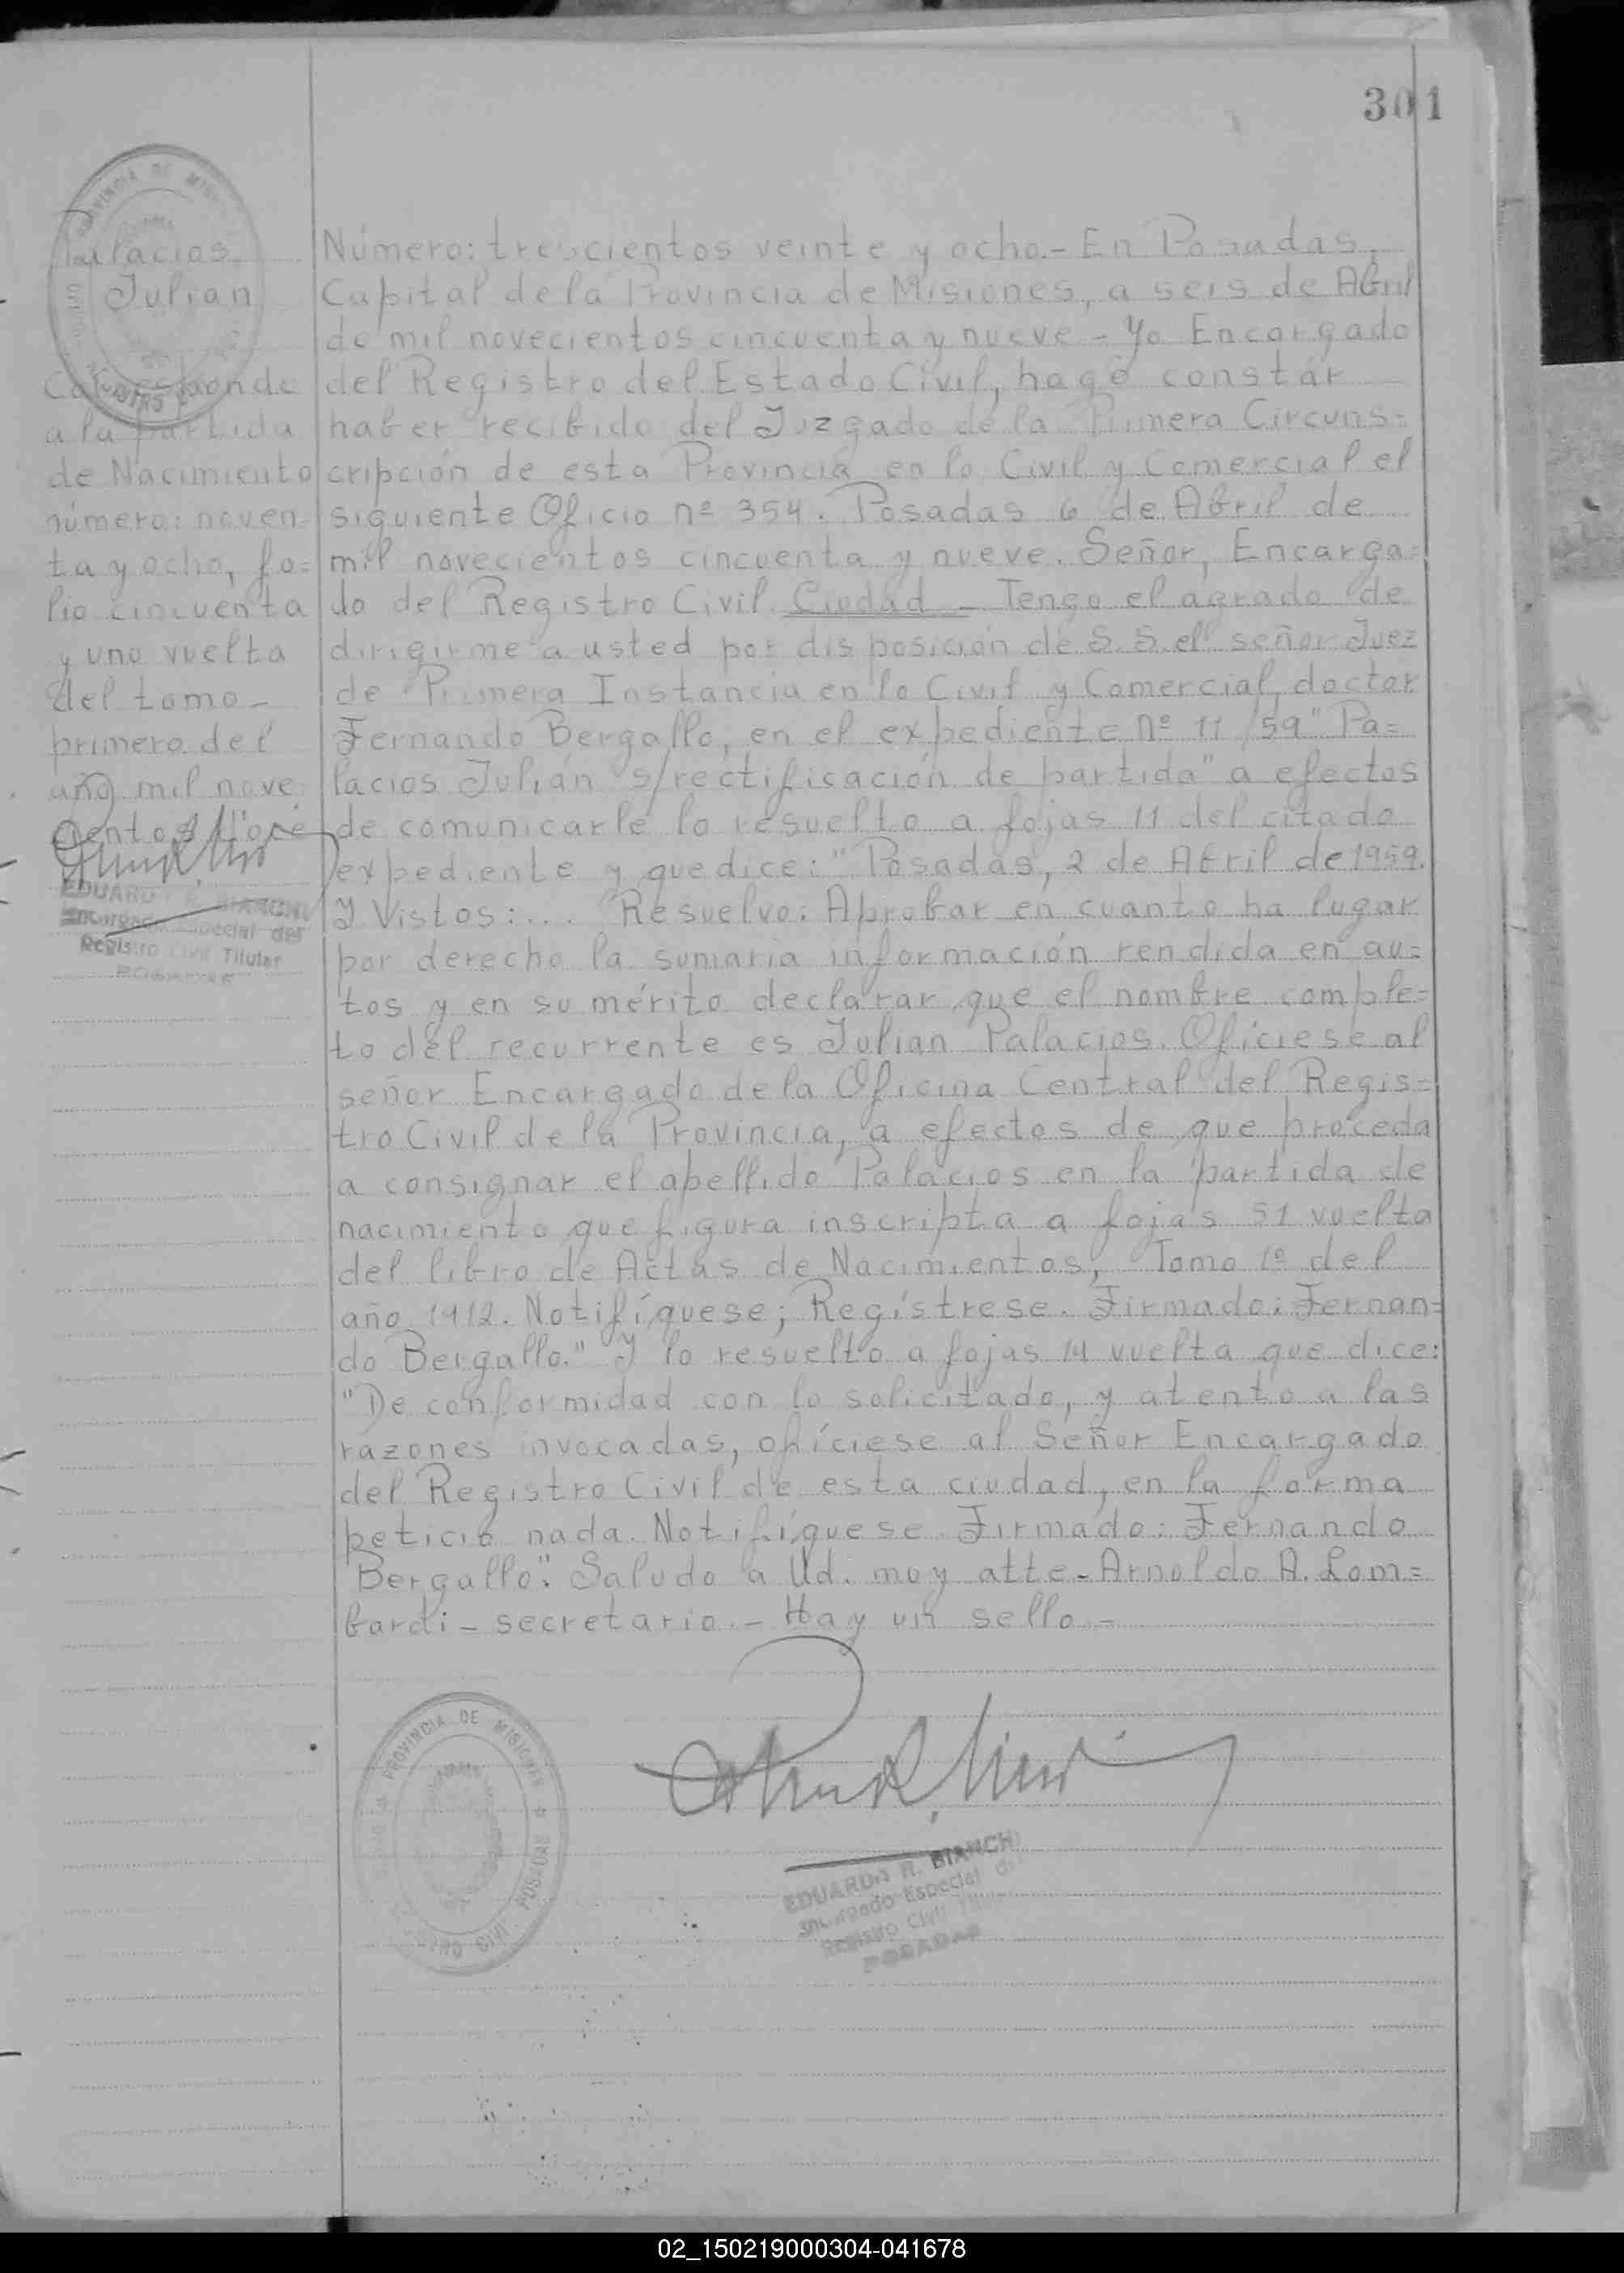 301
Palacios
Julian
Corresponde
a la partida
de Nacimiento
número: noven-
ta y ocho, fo=
lio cincuenta
y uno vuelta
del tomo -
primero del
año mil nove
cientos doce
EDUARDO R. BIANCHI
Encargado Especial del
Registro Civil Titular
POSADAS
Número: trescientos veinte y ocho.- En Posadas,
Capital de la Provincia de Misiones, a seis de Abril
de mil novecientos cincuenta y nueve - Yo Encargado
del Registro del Estado Civil, hago constar
haber recibido del Juzgado de la Primera Circuns=
cripción de esta Provincia en lo Civil y Comercial el
siguiente Oficio nº 354. Posadas 6 de Abril de
mil novecientos cincuenta y nueve. Señor, Encarga=
do del Registro Civil. Ciudad - Tengo el agrado de
dirigirme a usted por disposición de S. S. el señor Juez
de Primera Instancia en lo Civil y Comercial, doctor
Fernando Bergallo, en el expediente Nº 11/59 "Pa=
lacios Julián s/rectificación de partida" a efectos
de comunicarle lo resuelto a fojas 11 del citado
expediente y que dice: "Posadas, 2 de Abril de 1959.
Y Vistos:... Resuelvo: Aprobar en cuanto ha lugar
por derecho la sumaria información rendida en au=
tos y en su mérito declarar que el nombre comple=
to del recurrente es Julian Palacios. Ofíciese al
señor Encargado de la Oficina Central del Regis=
tro Civil de la Provincia, a efectos de que proceda
a consignar el apellido Palacios en la partida de
nacimiento que figura inscripta a fojas 51 vuelta
del libro de Actas de Nacimientos, Tomo 1º del
año 1912. Notifíquese; Regístrese. Firmado: Fernan=
do Bergallo." Y lo resuelto a fojas 14 vuelta que dice:
"De conformidad con lo solicitado, y atento a las
razones invocadas, ofíciese al Señor Encargado
del Registro Civil de esta ciudad, en la forma
peticio nada. Notifíquese. Firmado: Fernando
Bergallo". Saludo a Ud. muy atte - Arnoldo A. Lom=
bardi - secretario. - Hay un sello -
PROVINCIA DE MISIONES
POSADAS
EDUARDO R. BIANCHI
Encargado Especial del
Registro Civil Titular
POSADAS
02_150219000304-041678